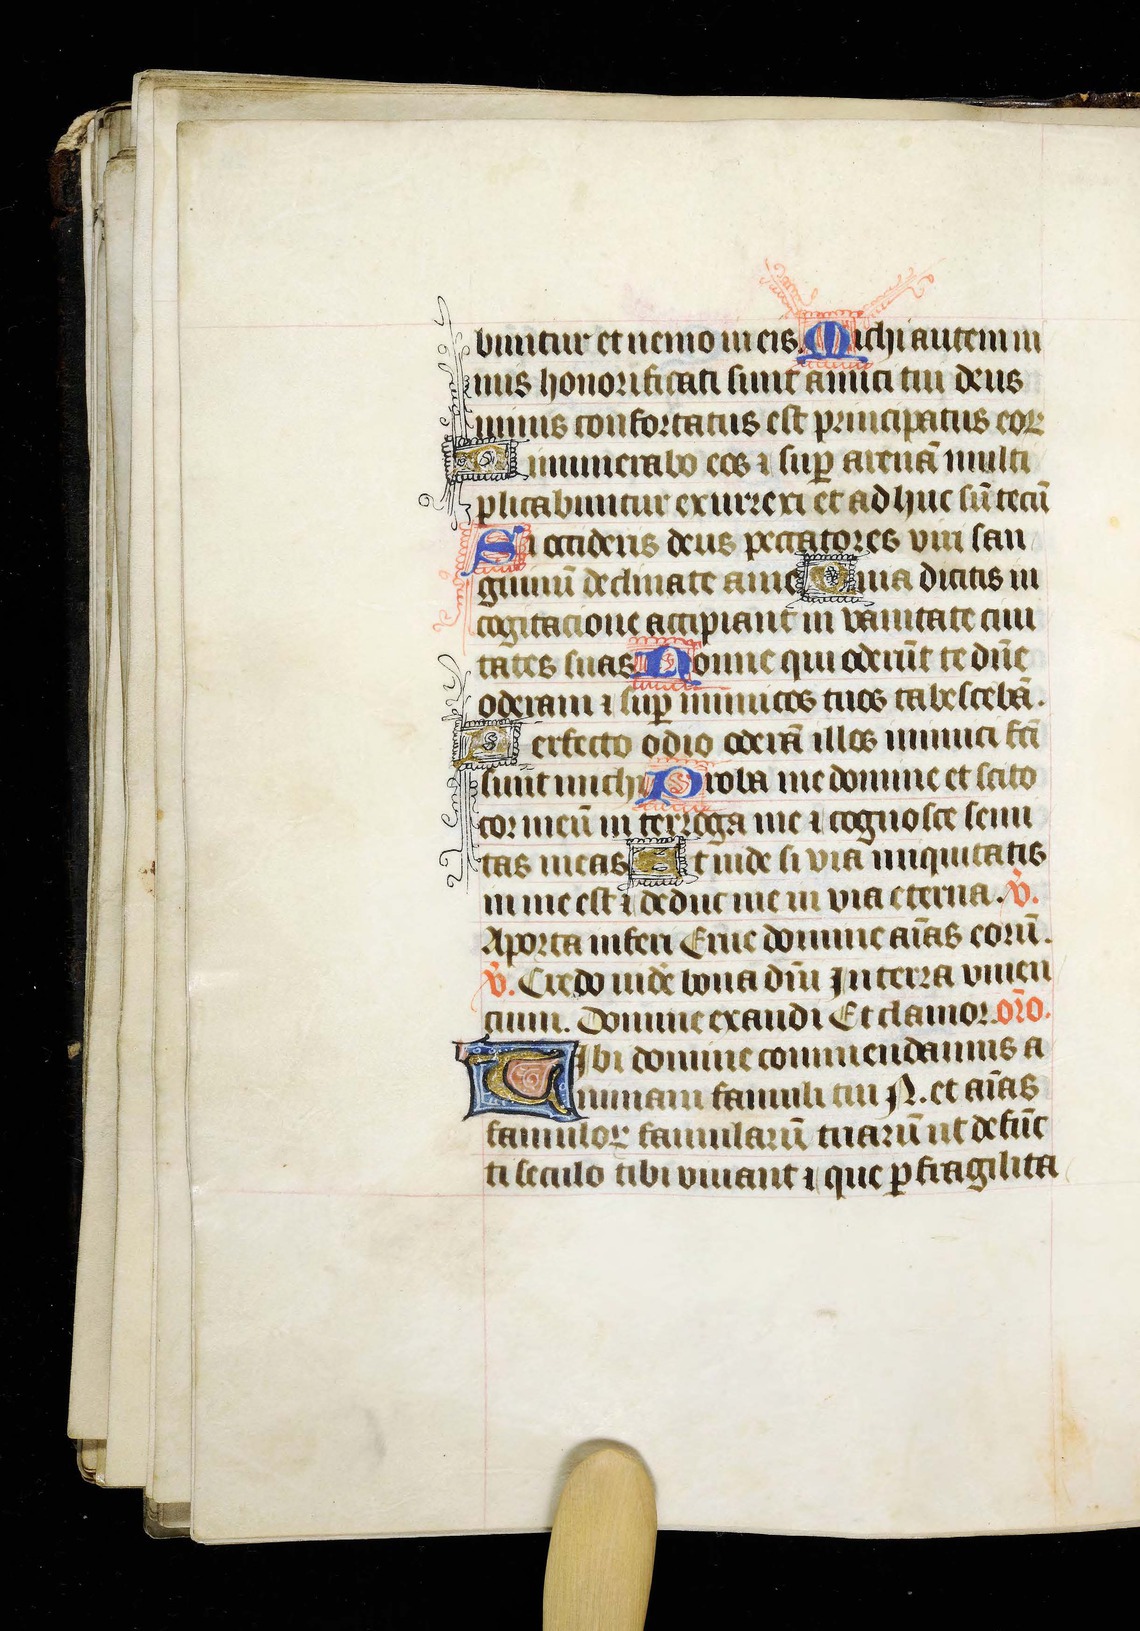 buntur et nemo in eis. Michi autem ni
mis honorificati sunt amici tui deus
nimis confortatus est principatus eoꝝ
Dinumerabo eos ⁊ suꝑ arenā multi
plicabuntur exurrexi et adhuc sū tecū
Si occideris deus peccatores viri san
guinū declinate a me Quia dicitis in
cogitacione accipiant in vanitate ciui
tates suas Nonne qui oderūt te dn̄e
oderam ⁊ suꝑ inimicos tuos tabescebā.
Perfecto odio oderā illos inimici fc̄i
sunt michi Proba me domine et scito
cor meū in terroga me ⁊ cognosce semi
tas meas Et uide si via iniquitatis
in me est ⁊ deduc me in via eterna. v̄.
Aporta inferi Erue domine aīas eorū.
v̄. Credo uidē bona dn̄i In terra viuen
cium. Domine exaudi Et clamor. or̄o.
Tibi domine commendamus a
nimam famuli tui N. et aīas
famuloꝝ famularū tuarū ut defūc
ti seculo tibi viuant ⁊ que ꝑ fragilita